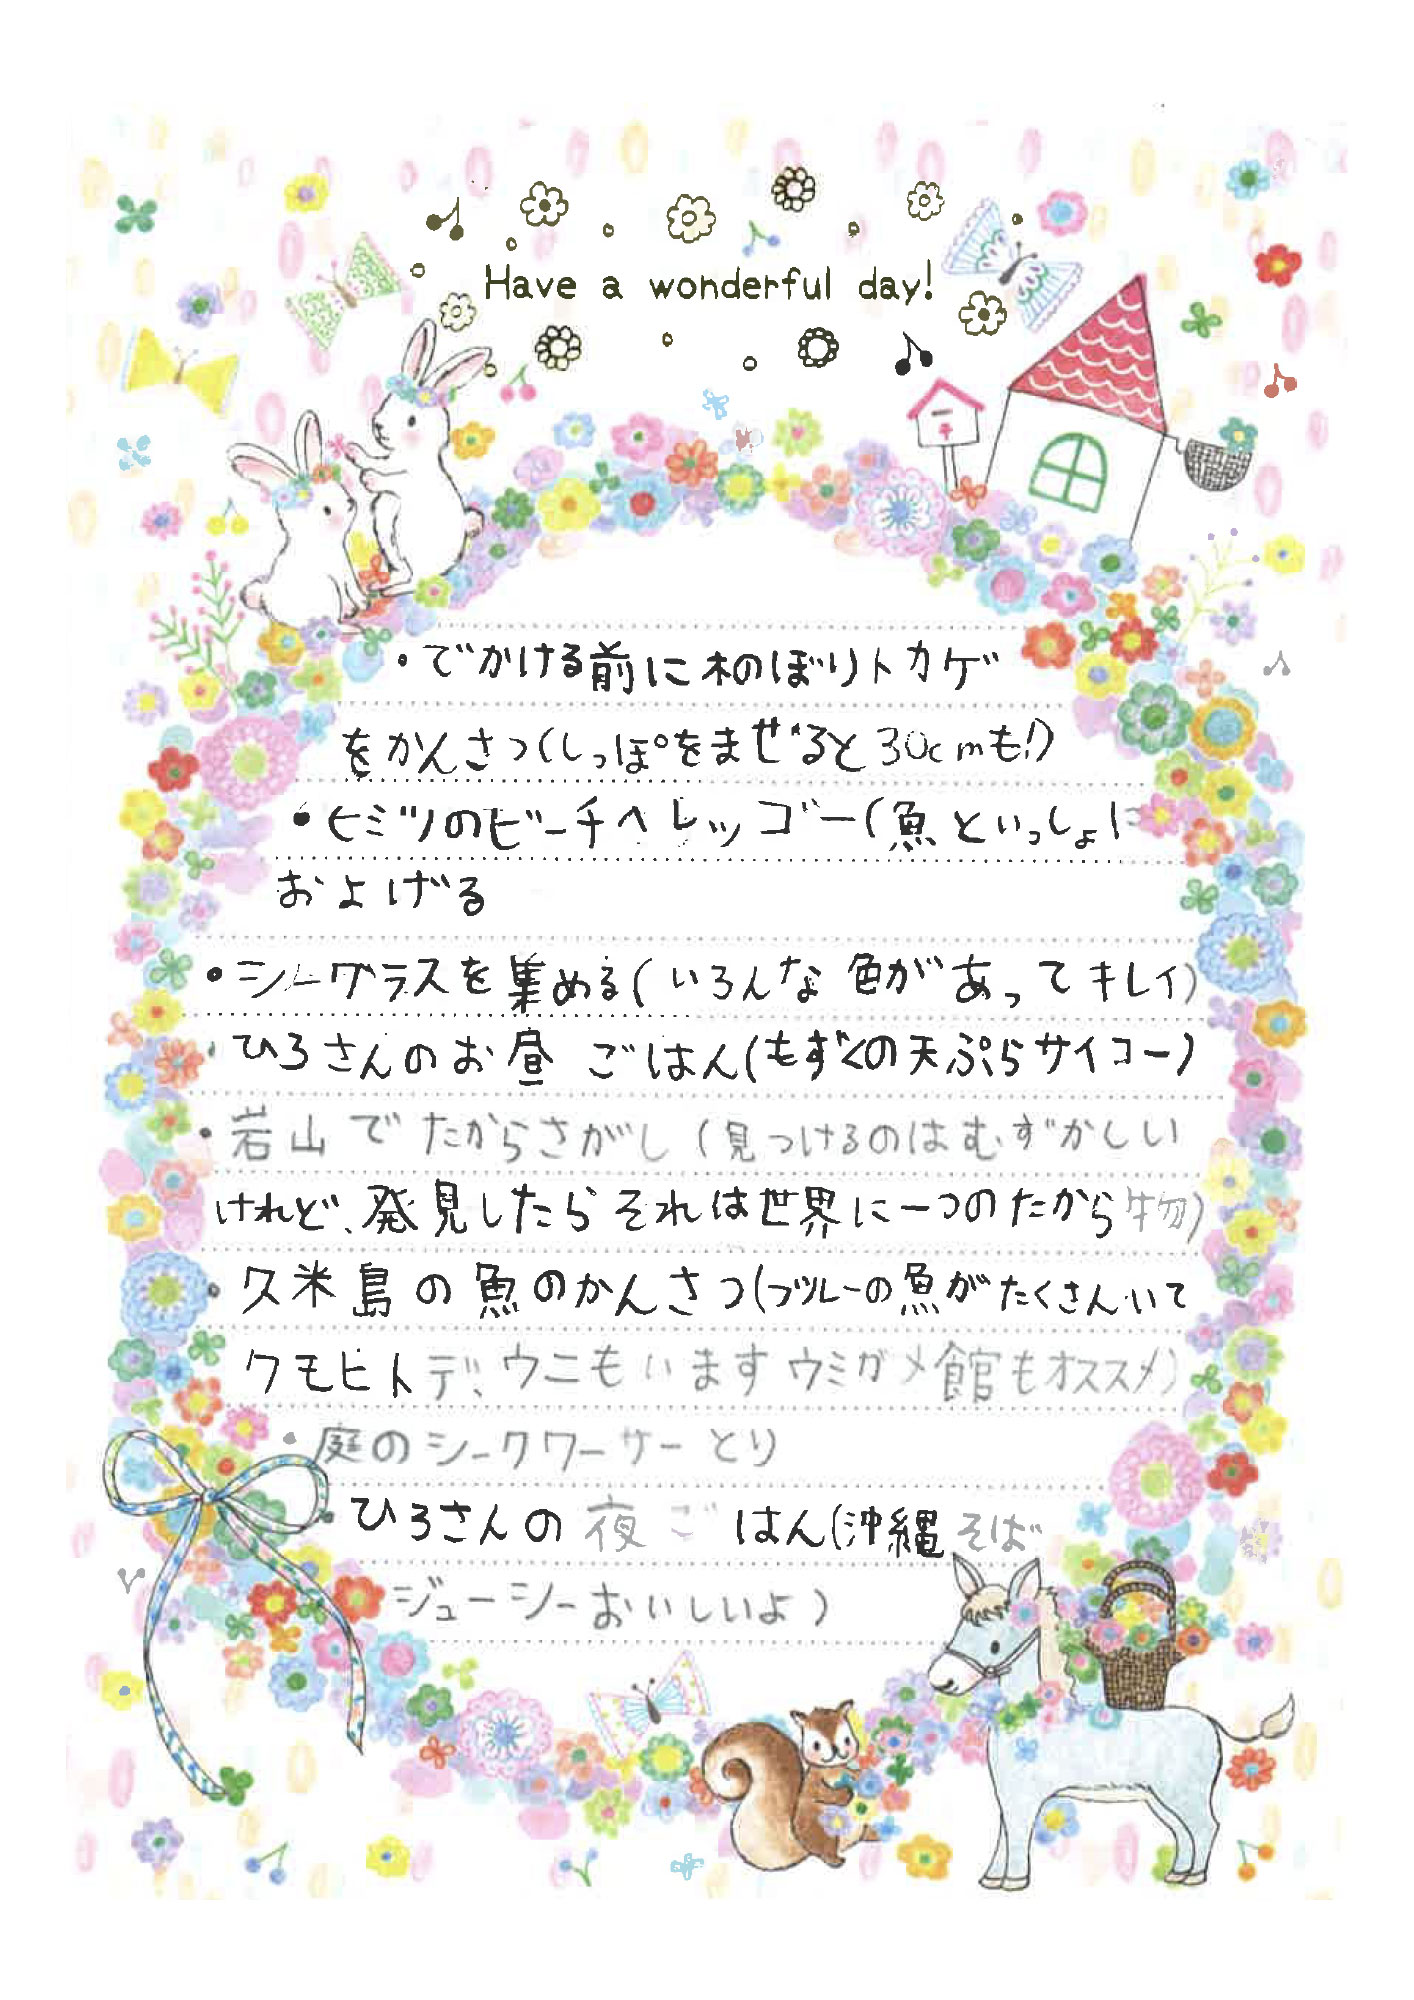 Have a wonderful day!
・でかける前に木のぼりトカゲ
をかんさつ(しっぽをまぜると30cmも!)
・ヒミツのビーチへレッツゴー(魚といっしょに
およげる
・シーグラスを集める(いろんな色があってキレイ)
・ひろさんのお昼ごはん(もずくの天ぷらサイコー)
・岩山でたからさがし(見つけるのはむずかしい
けれど、発見したらそれは世界に一つのたから物)
・久米島の魚のかんさつ(ブルーの魚がたくさんいて
クモヒトデ、ウニもいますウミガメ館もオススメ)
・庭のシークワーサーとり
・ひろさんの夜ごはん(沖縄そば
ジューシーおいしいよ)